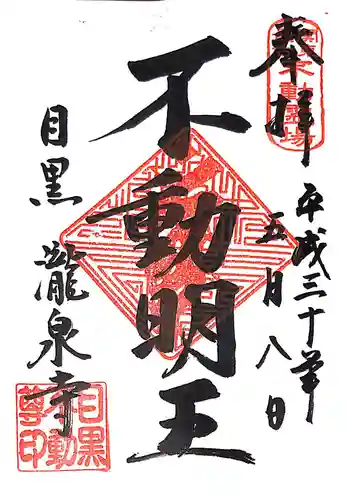 奉拝
平成三十年
五月八日
不動明王
目黒
瀧泉寺
目黒
不動
尊印